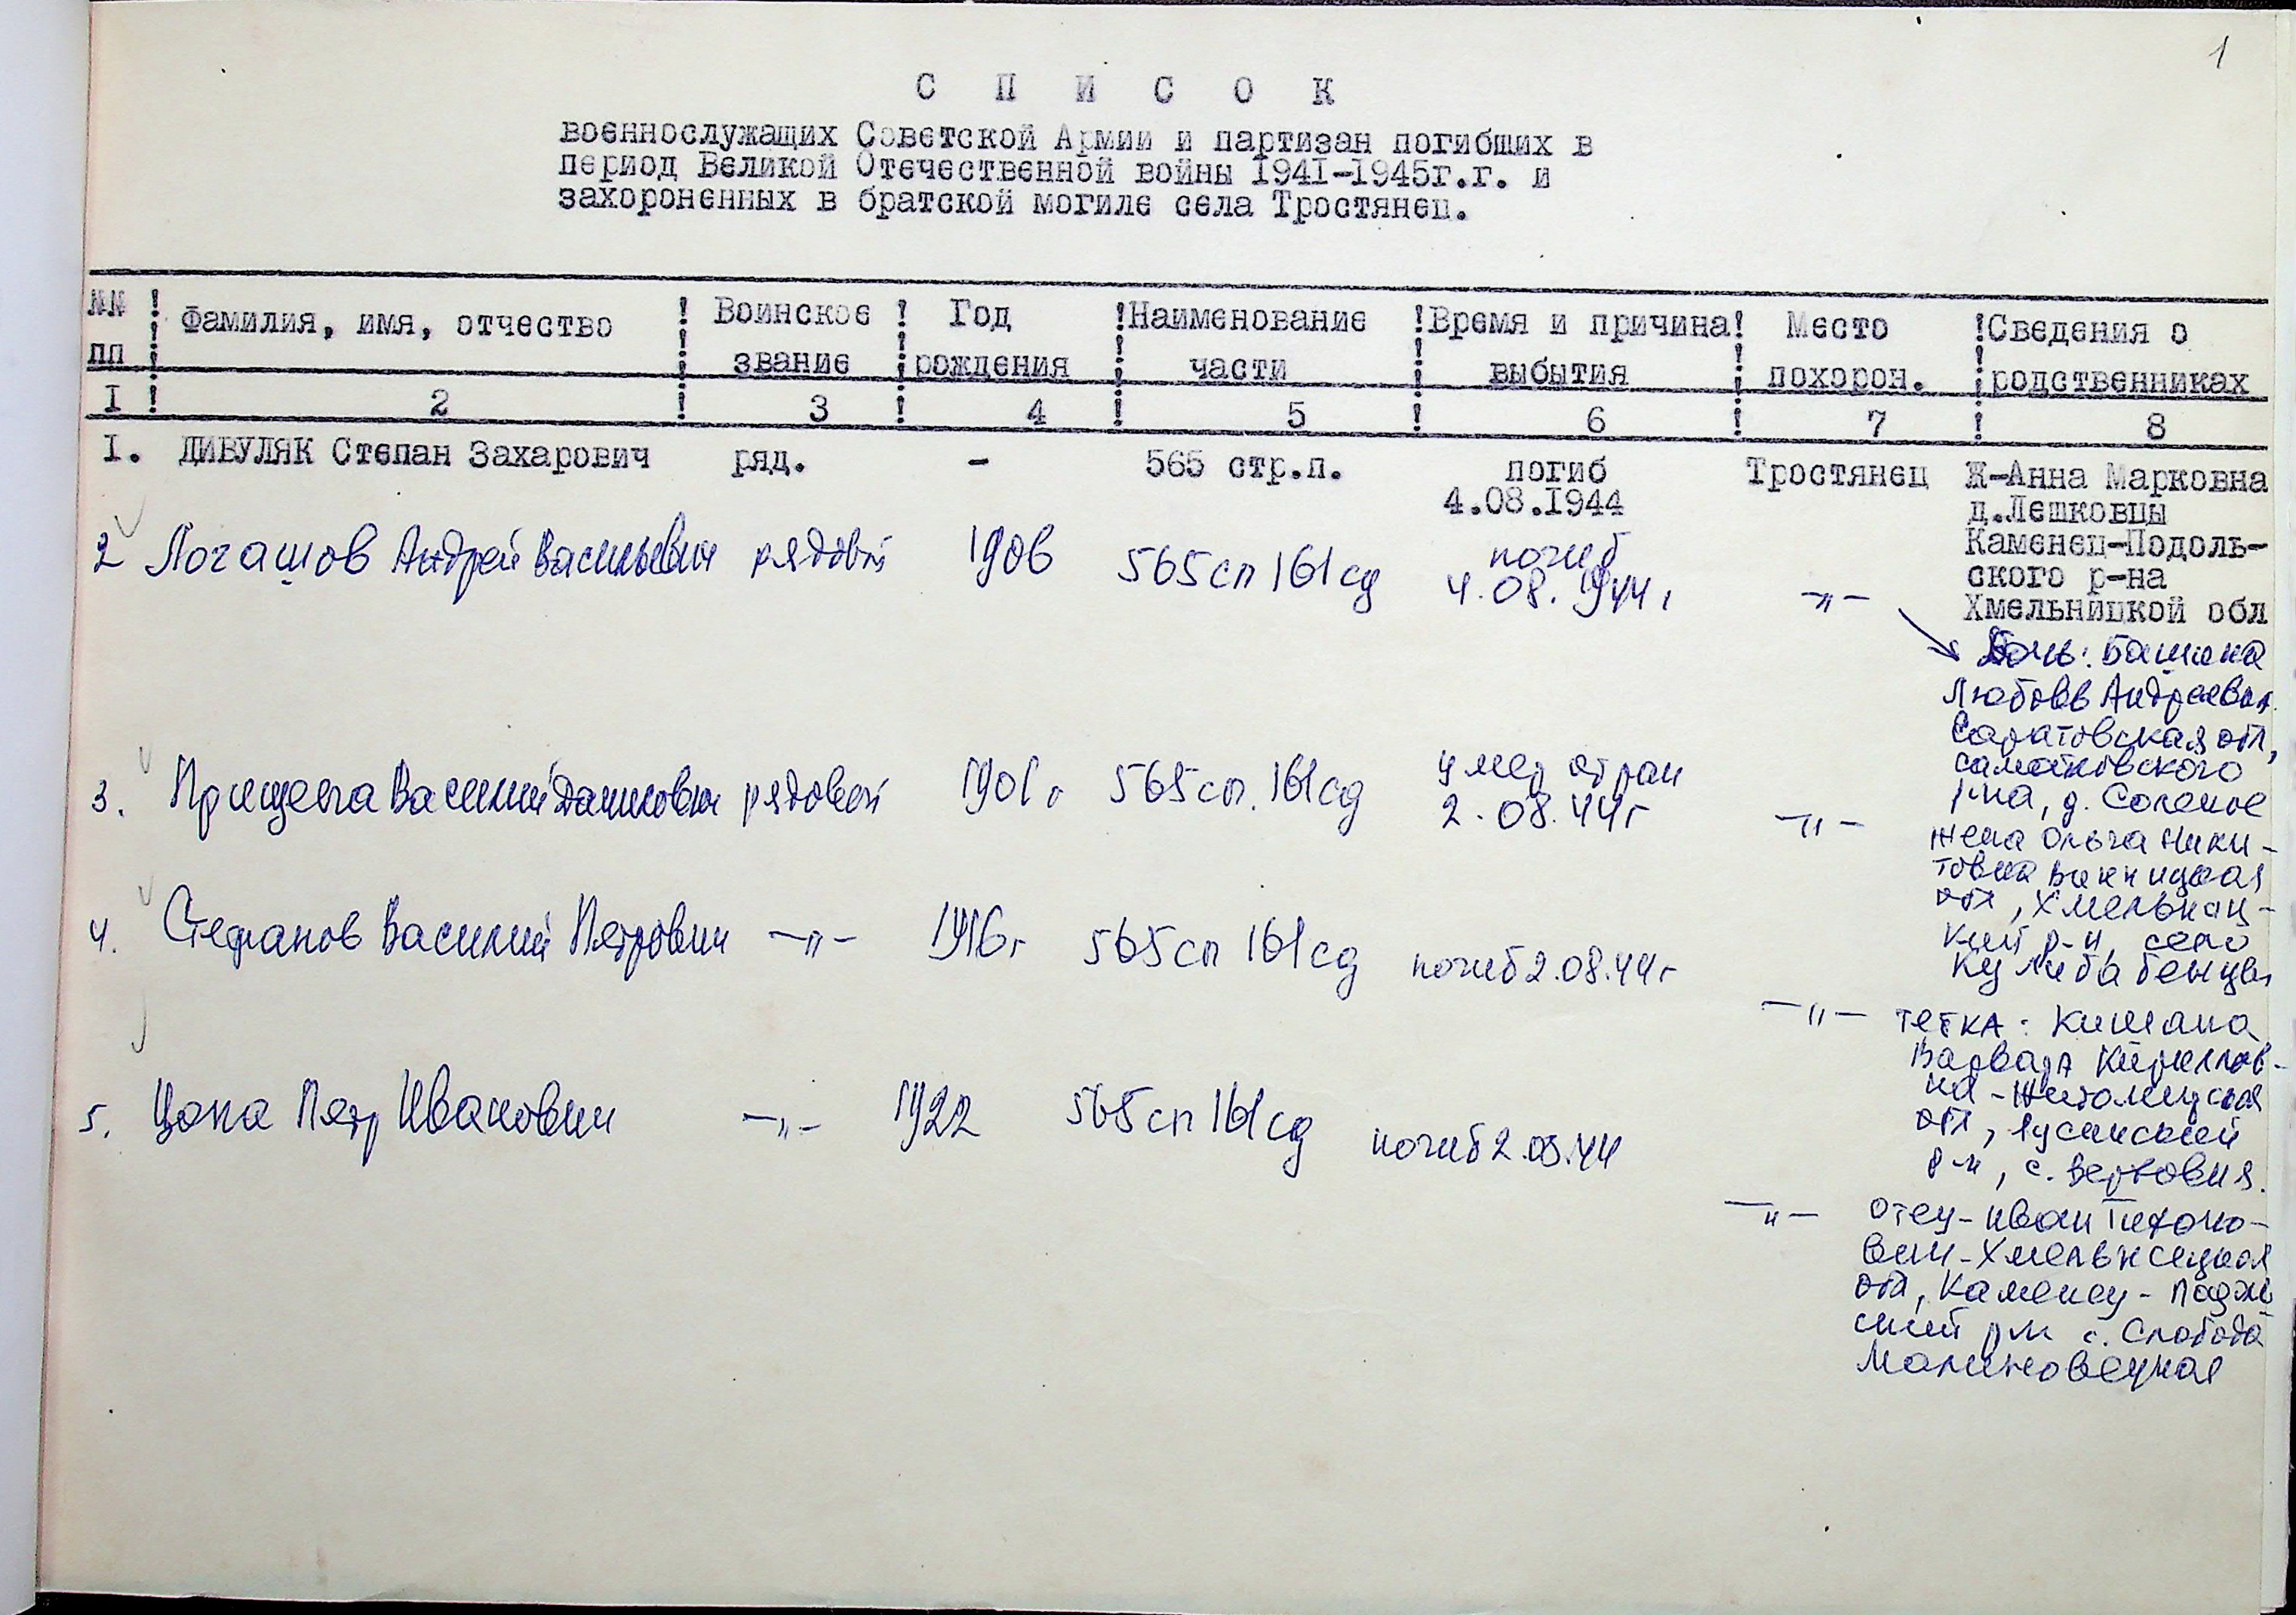 1
С П И С О К
военнослужащих Советской Армии и партизан погибших в
период Великой Отечественной войны 1941-1945г.г. и
захороненных в братской могиле села Тростянец.
№№ ! Фамилия, имя, отчество ! Воинское ! Год !Наименование !Время и причина! Место !Сведения о
пп ! ! звание ! рождения ! части ! выбытия ! похорон. ! родственниках
I ! 2 ! 3 ! 4 ! 5 ! 6 ! 7 ! 8
I. ДИВУЛЯК Степан Захарович ряд. - 565 стр.п. погиб Тростянец Ж-Анна Марковна
4.08.1944 д.Лешковцы
Каменец-Подоль-
ского р-на
Хмельницкой обл
2 Логашов Андрей Васильевич рядовой 1906 565 сп 161 сд погиб
4.08.1944г -"-
Дочь: Башкина
Любовь Андреевна
Саратовская обл,
самойловского
р-на, д. Соленое
3. Прищепа Василий Данилович рядовой 1901г 565 сп. 161 сд умер от ран
2.08.44г -"-
жена Ольга Ники-
товна Винницкая
обл, Хмельниц-
кий р-н, село
4. Стефанов Василий Петрович -"- 1916г 565 сп 161 сд погиб 2.08.44г
-"- тетка: Кишана
Варвара Кириллов-
на - Житомирская
обл,
р-н, с. Вербовня.
5. Цопа Петр Иванович -"- 1922 565 сп 161 сд погиб 2.08.44
-"- отец - Иван Тихоно-
вич - Хмельницкая
обл, Каменец - Подоль
ский р-н с. Слобода
Малиновецкая